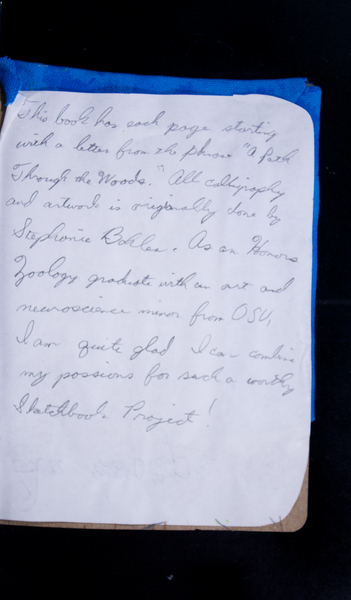 This book has each page starting
with a letter from the phrase "A Path
Through the Woods." All calligraphy
and artwork is originally done by
Stephanie . As an Honors
Zoology graduate with an art and
neuroscience minor from OSU,
I am quite glad I can combine
my passions for such a worthy
Sketchbook Project!